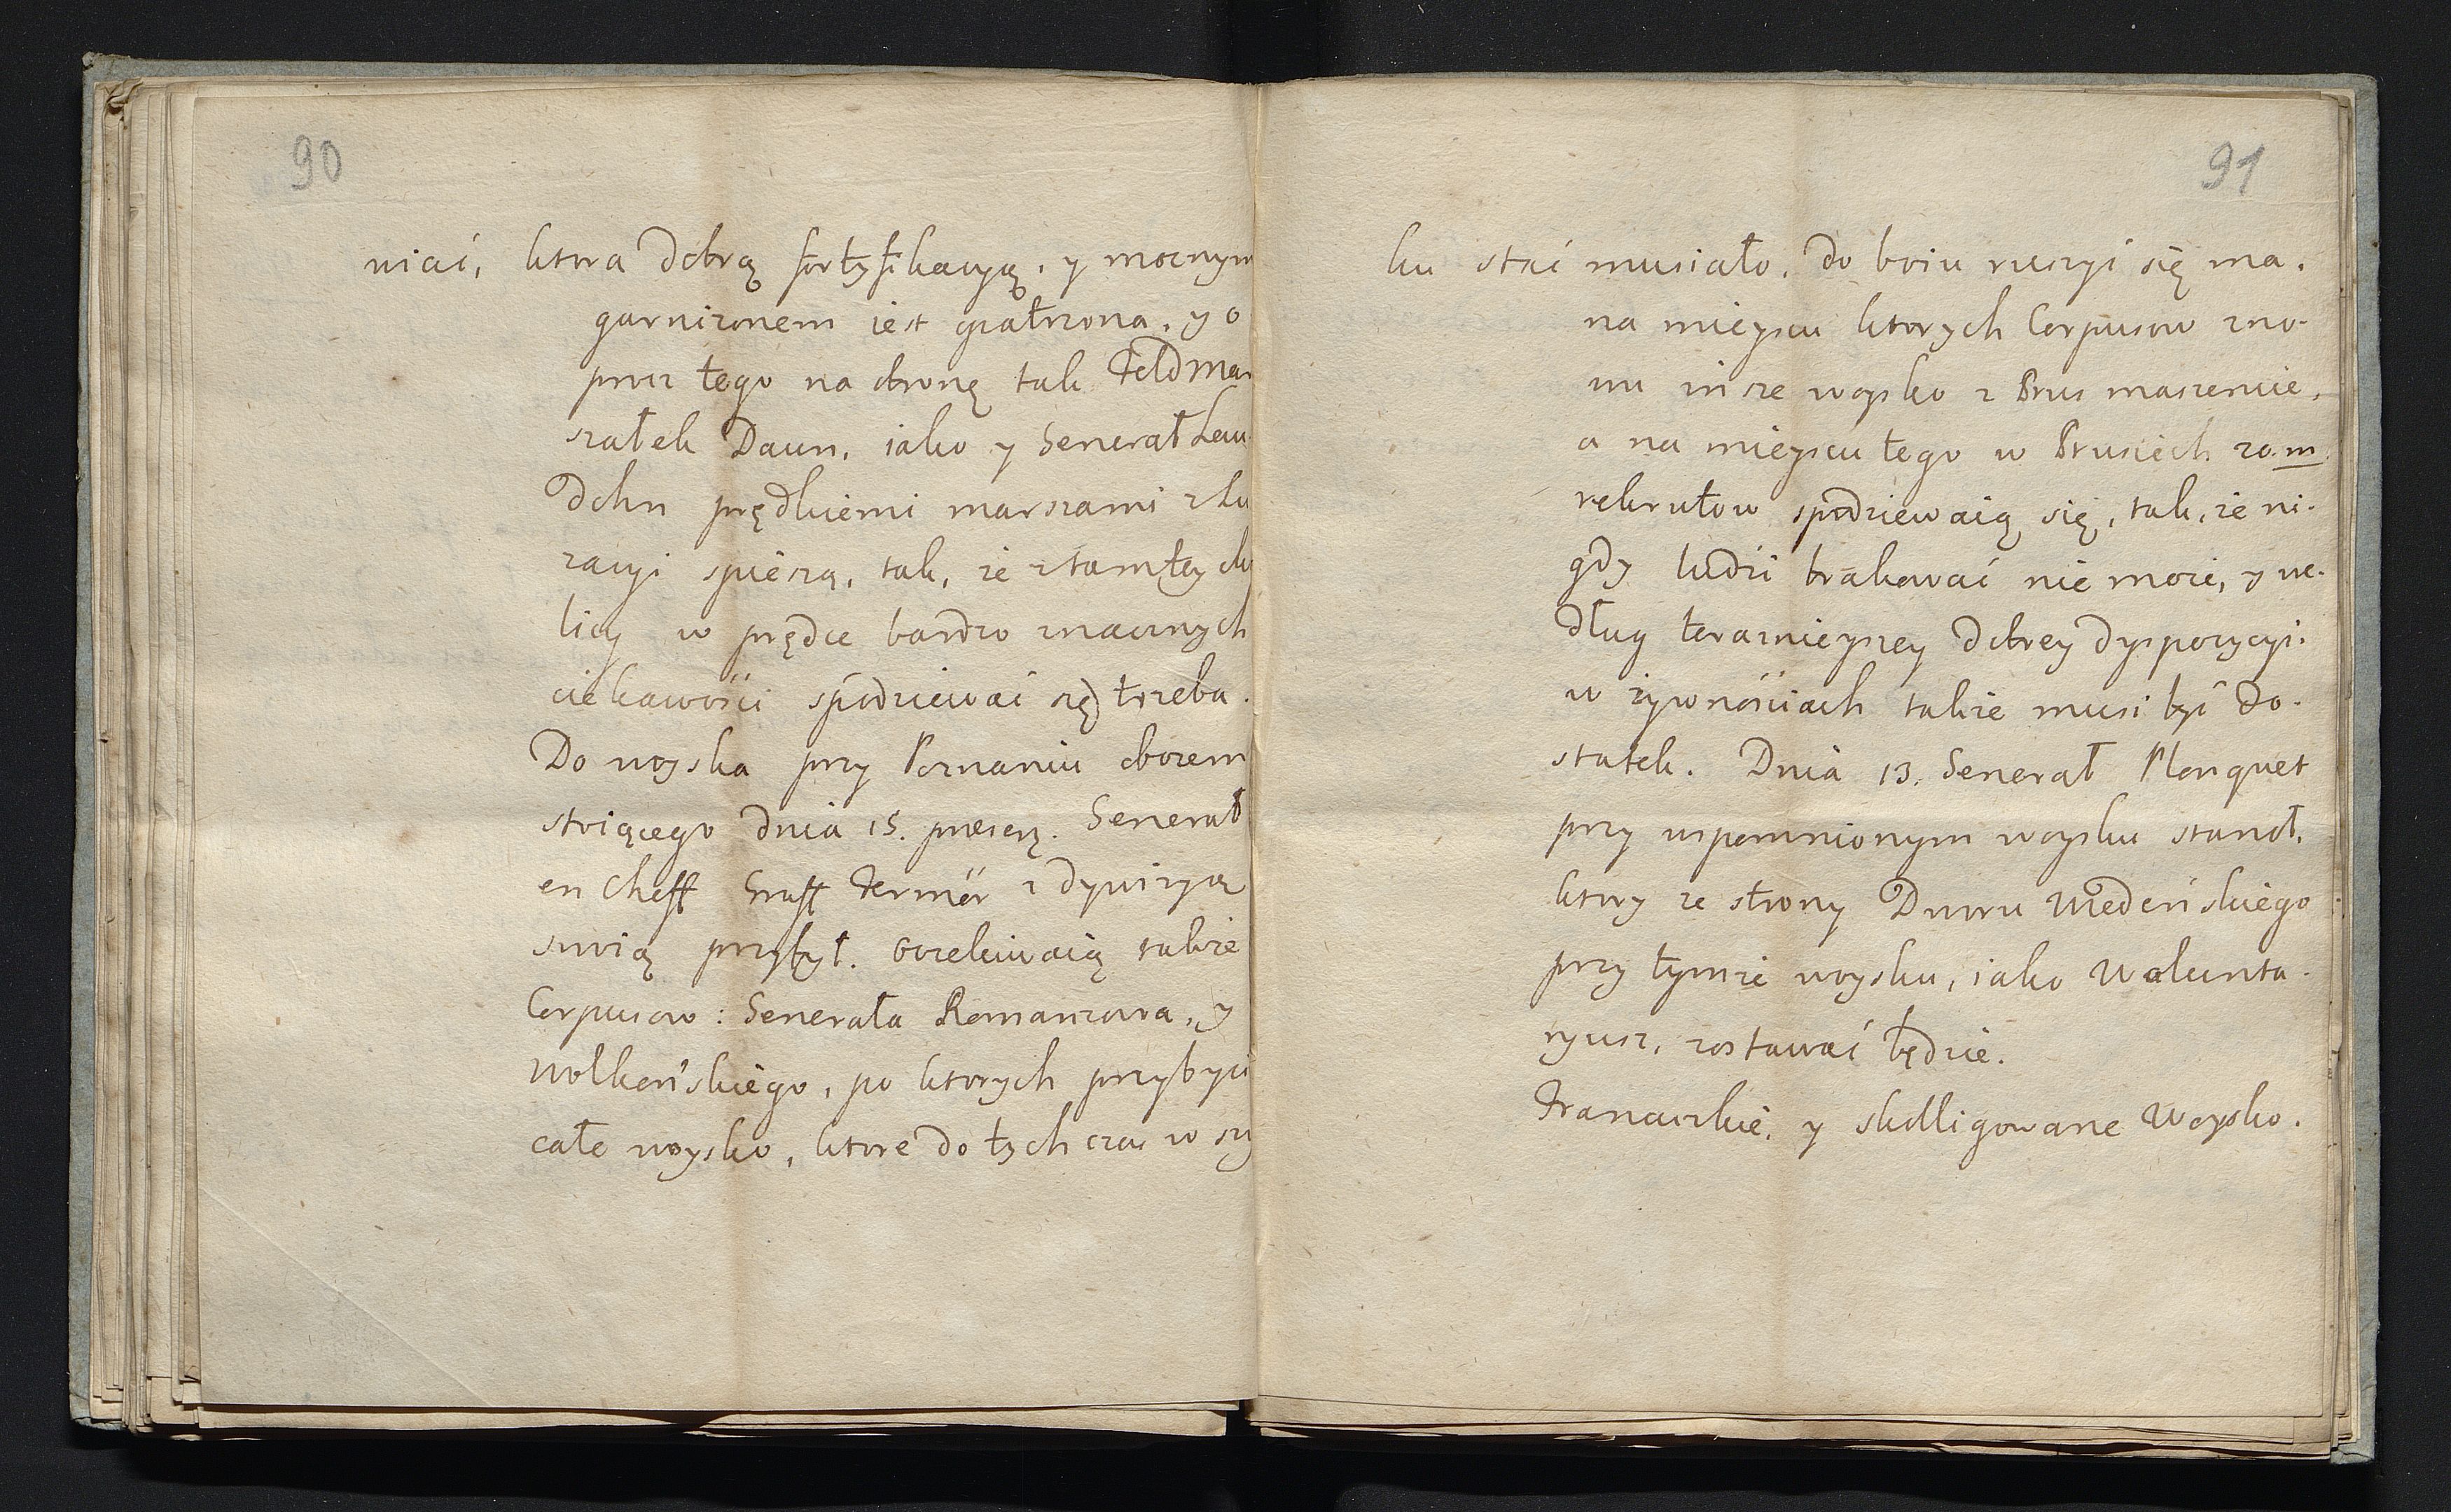 90
niać, ktora dobrą fortyfikacyą, y mocnym
garnizonem iest opatrzona, y o
procz tego na obronę tak Feldmar
szałek Daun, iako y Generał Lau
dohn prędkiemi marszami z Lu
zacyi spieszą, tak, że z tamtey oko
licy w prędce bardzo znacznych
ciekawości spodziewać się trzeba.
Do woyska przy Poznaniu obozem
stoiącego dnia 15. praesen. Generał
en Cheff Graff Fermör z dywizyą
swoią przybył. Oczekiwaią także
Corpusow: Generała Romanzowa, y
Wolkońskiego, po ktorych przybyci
całe woysko, ktore do tych czas w szy
91
ku stać musiało, do boiu ruszyć się ma,
na mieyscu ktorych Corpusow zno-
wu insze woysko z Prus maszeruie,
a na mieyscu tego w Prusiech 20.m.
rekrutow spodziewaią się, tak, że ni-
gdy ludzi brakować nie może, y we-
dług teraznieyszey dobrey dyspozycyi.
w żywnościach także musi być do-
statek. Dnia 13. Generał Plonquet
przy wspomnionym woysku stanoł,
ktory ze strony Dworu Wiedeńskiego
przy tymże woysku, iako Wolunta-
ryusz, zostawać będzie.
Francuzkie, y skolligowane Woysko.